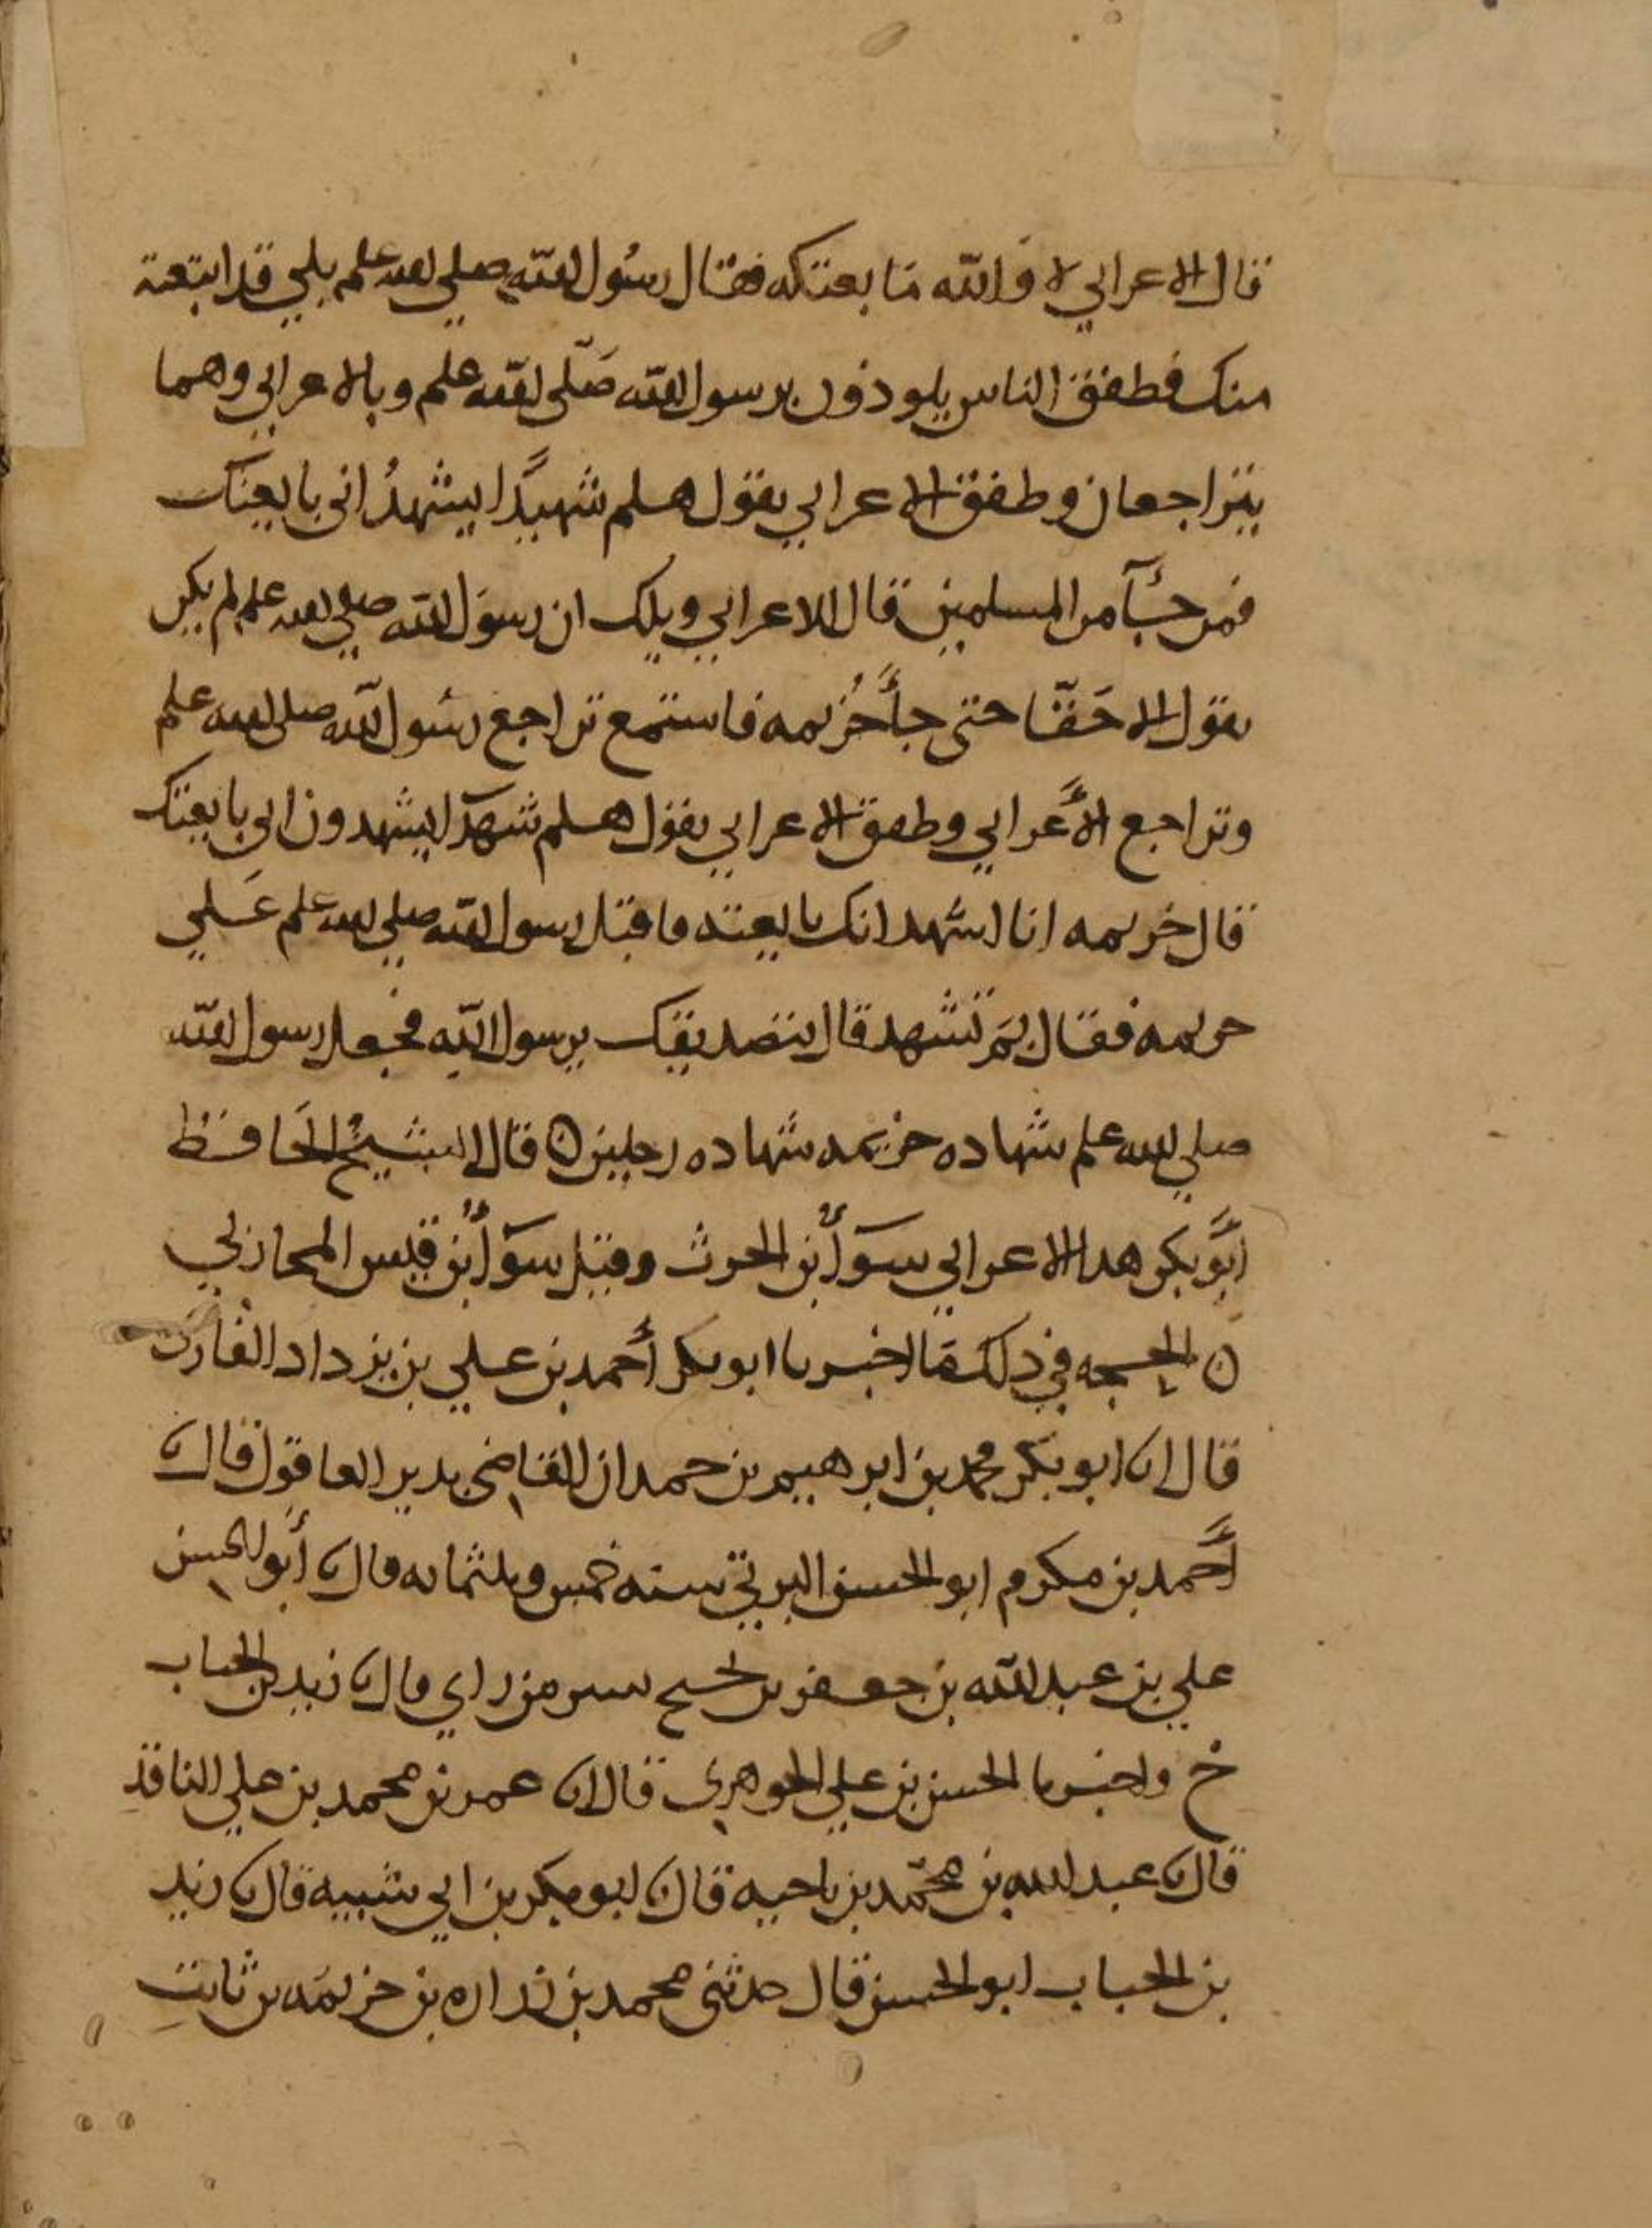 قال الاعرابي لا والله ما بعتكه فقال رسول الله صلى الله علم بلي قد ابتعته
منك فطفق الناس يلوذون برسول الله صَلّى الله علم وبالاعرابي وهما
يتراجعان وطفق الاعرابي يقول هلم شهيدًا يشهدُ اني بايعتك
فمن جـآ من المسلمين قال للاعرابي ويلك ان رسول الله صلي الله علم لم يكن
يقول الا حَقّا حتى جأ خُزيمه فاستمع تراجع رسول الله صلى الله علم
وتراجع الأعرابي وطفق الاعرابي يقول هلم شهدا يشهدون اني بايعتك
قال خزيمه انا اشهد انك بايعته فاقبل رسول الله صلي الله علم عَلي
خزيمه فقال بمَ تشهد قال بتصديقك يرسول الله فجعل رسول الله
صلي الله علم شهاده خزيمه شهاده رجلين ن قال الشيخ الحافظ
أبو بكر هدا الاعرابي سوأ بن الحرث وقيل سوأ بن قيس المحاربي
ن الحجه في ذلك ما اخبرنا ابو بكر أحمد بن علي بن يزداد القارئ
قال انا ابو بكر محمد بن ابرهيم بن حمدان القاضي بدير العاقول قال نا
أحمد بن مكرم ابو الحسن البرتي سنه خمس وثلثمايه قال نا أبو الحسن
علي بن عبد الله بن جعفر بن نجيح بسر من راي قال نا زيد بن الحباب
خ واخبرنا الحسن بن علي الجوهري قال انا عمر بن محمد بن علي الناقد
قال نا عبد الله بن محمّد بن ناجيه قال نا ابو بكر بن ابي شيبه قال نا زيد
بن الحباب ابو الحسن قال حدثني محمد بن زراره بن خزيمَه بن ثابت